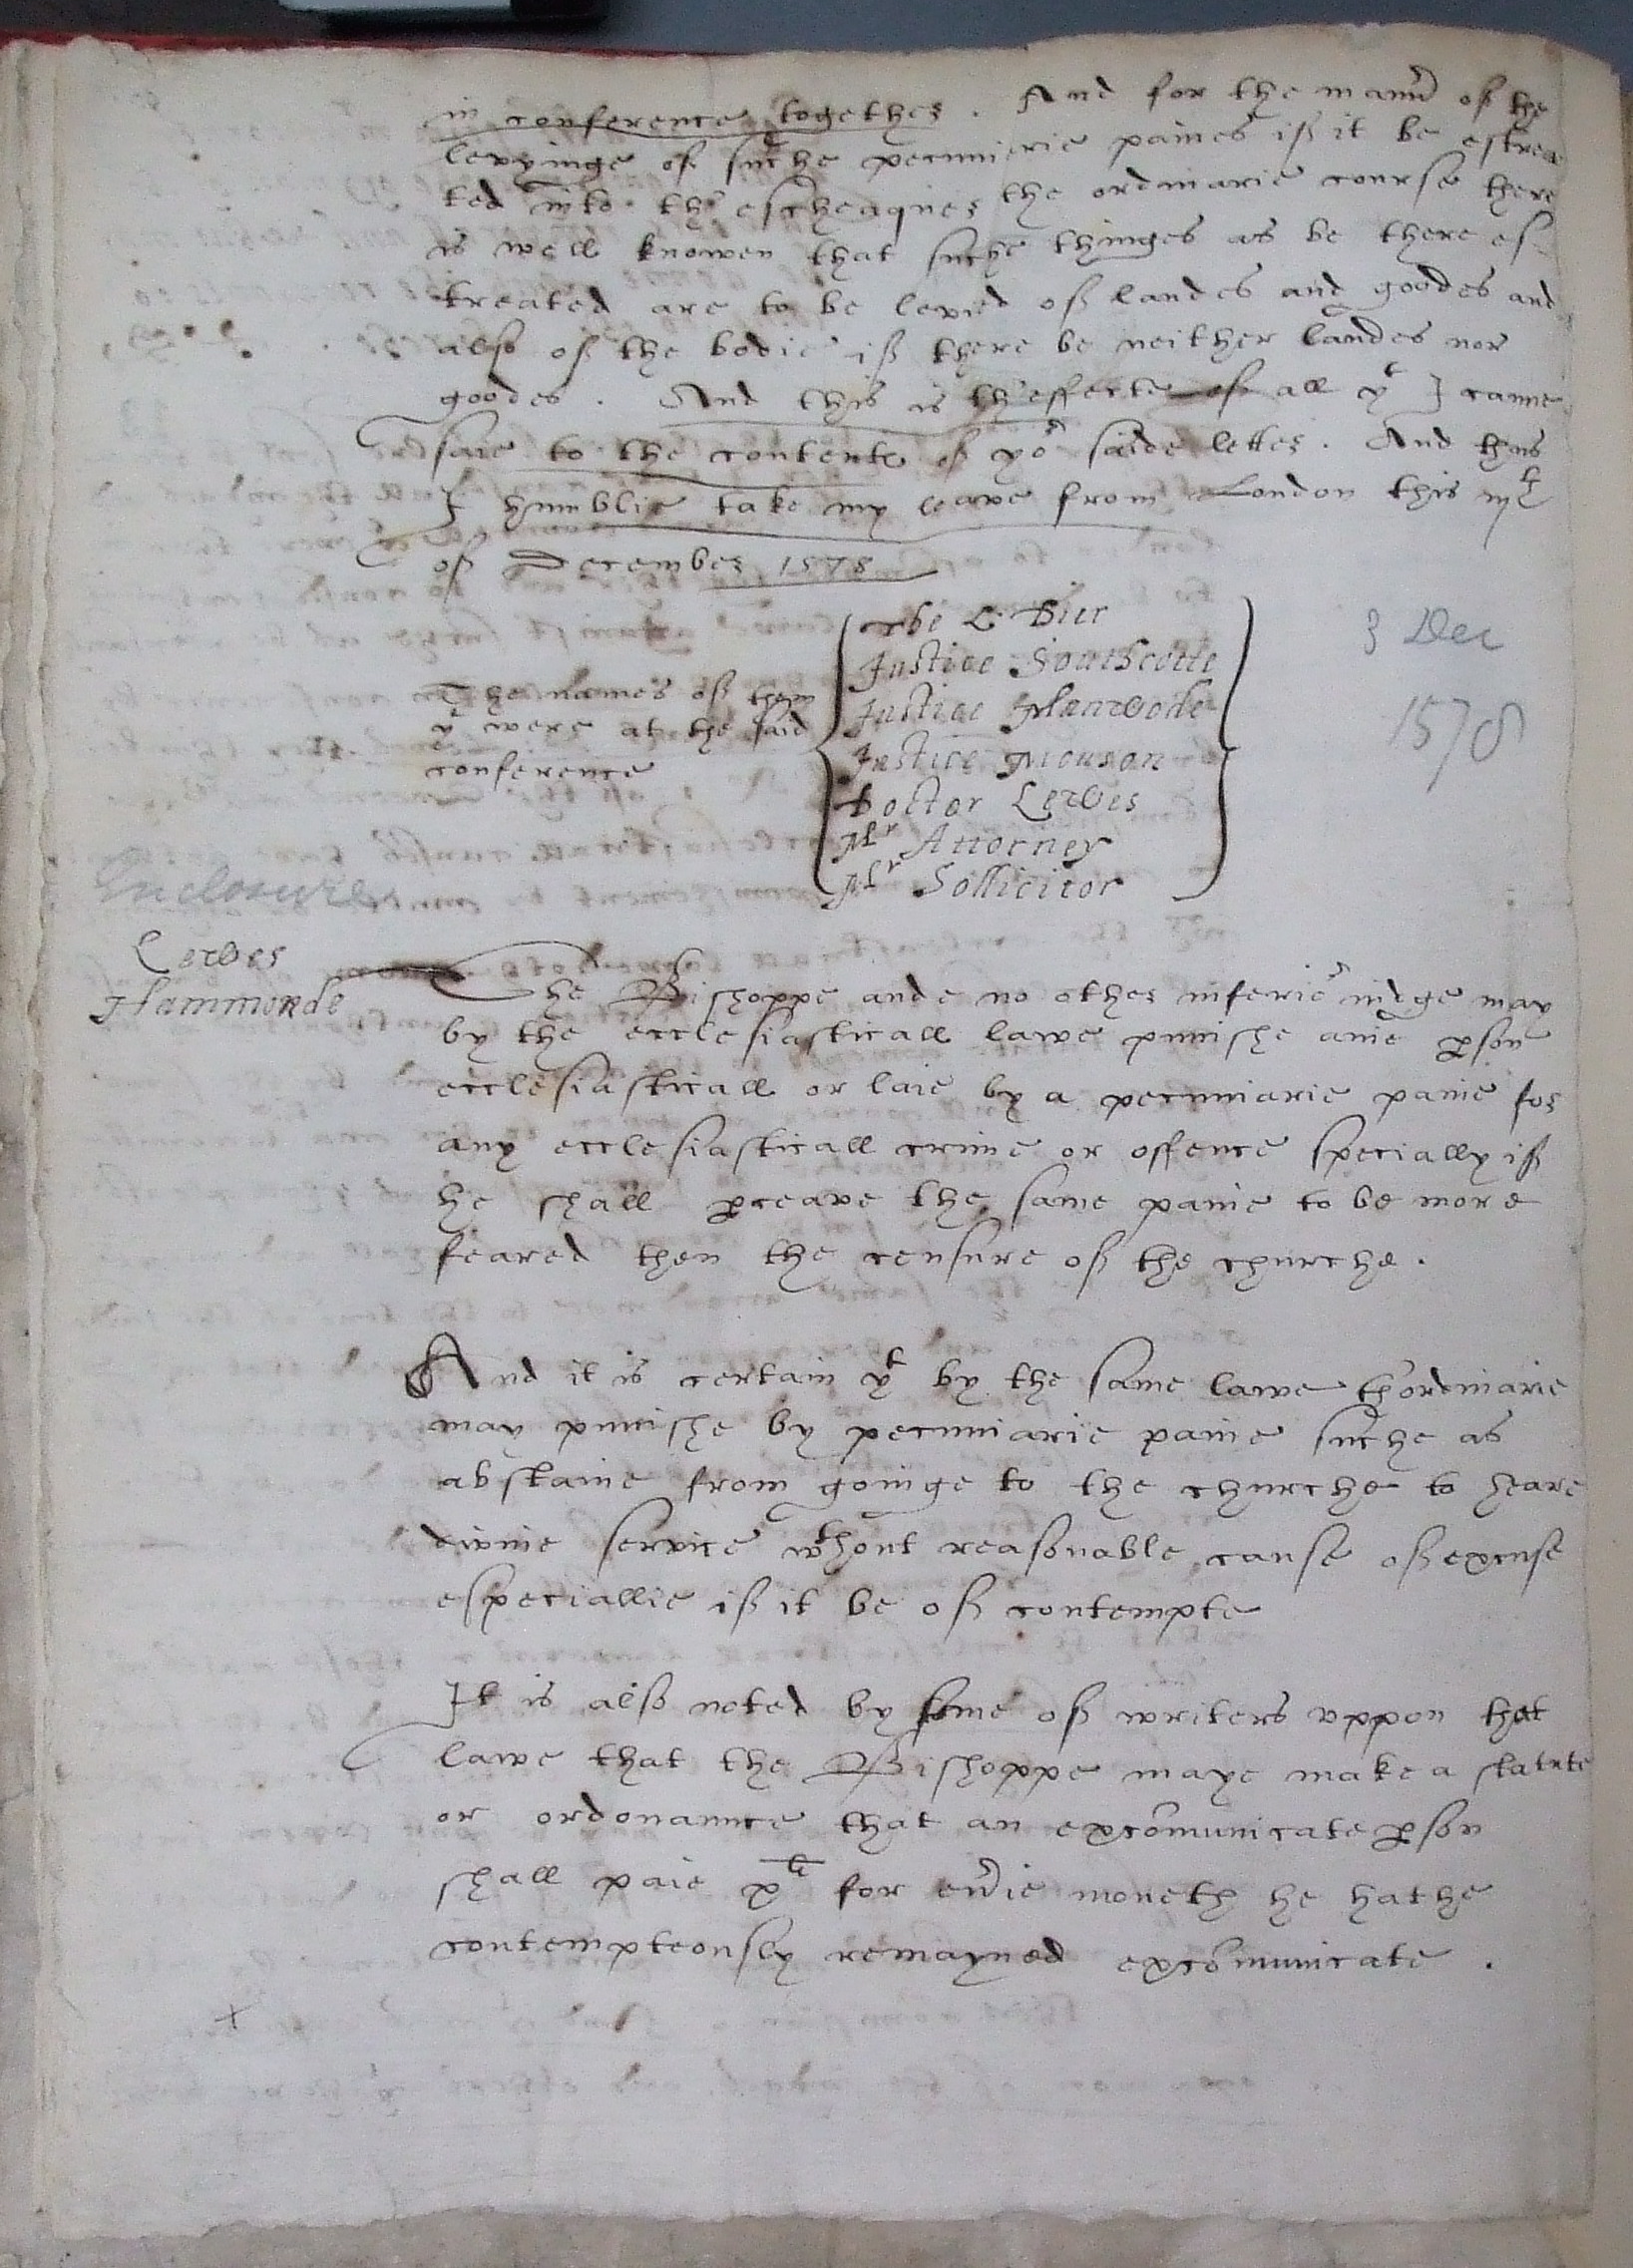 in conference together. And for the mann[er] of the
levyinge of suche pecunierie paines if it be estrea
ted into th'escheaquer the ordinarie course there
is well knowen that suche thinges as be there es
treated are to be levied of landes and goodes and
also of the bodie if there be neither landes nor
goodes. And this is th'effecte of all yt I canne
saie to the contente of yor saide letter. And thus
I humblie take my leave from London this iijth
of December 1578
The names of them
yt were at the said
conference
the L. Dier
Justice Southcotte
Justice Manwode
Justice Mounson
Doctor Lewes
Mr Attorney
Mr Sollicitor
3 Dec
1578
Enclosure
Lewes
Hammonde
The Bishoppe ande no other inferior iudge may
by the ecclesiasticall lawe punishe anie pson
ecclesiasticall or laie by a pecuniarie paine for
any ecclesiasticall crime or offence specially if
he shall pceave the same paine to be more
feared then the censure of the churche.
And it is certain yt by the same lawe th'ordinarie
may punishe by pecuniarie paine suche as
abstaine from goinge to the churche to heare
divine service wthout reasonable cause of excuse
especiallie if it be of contempte
It is also noted by some of writers uppon that
lawe that the Bishoppe maye make a statute
or ordonaunce that an excomunicate pson
shall paie xli for evie moneth he hathe
contempteously remayned excomunicate.